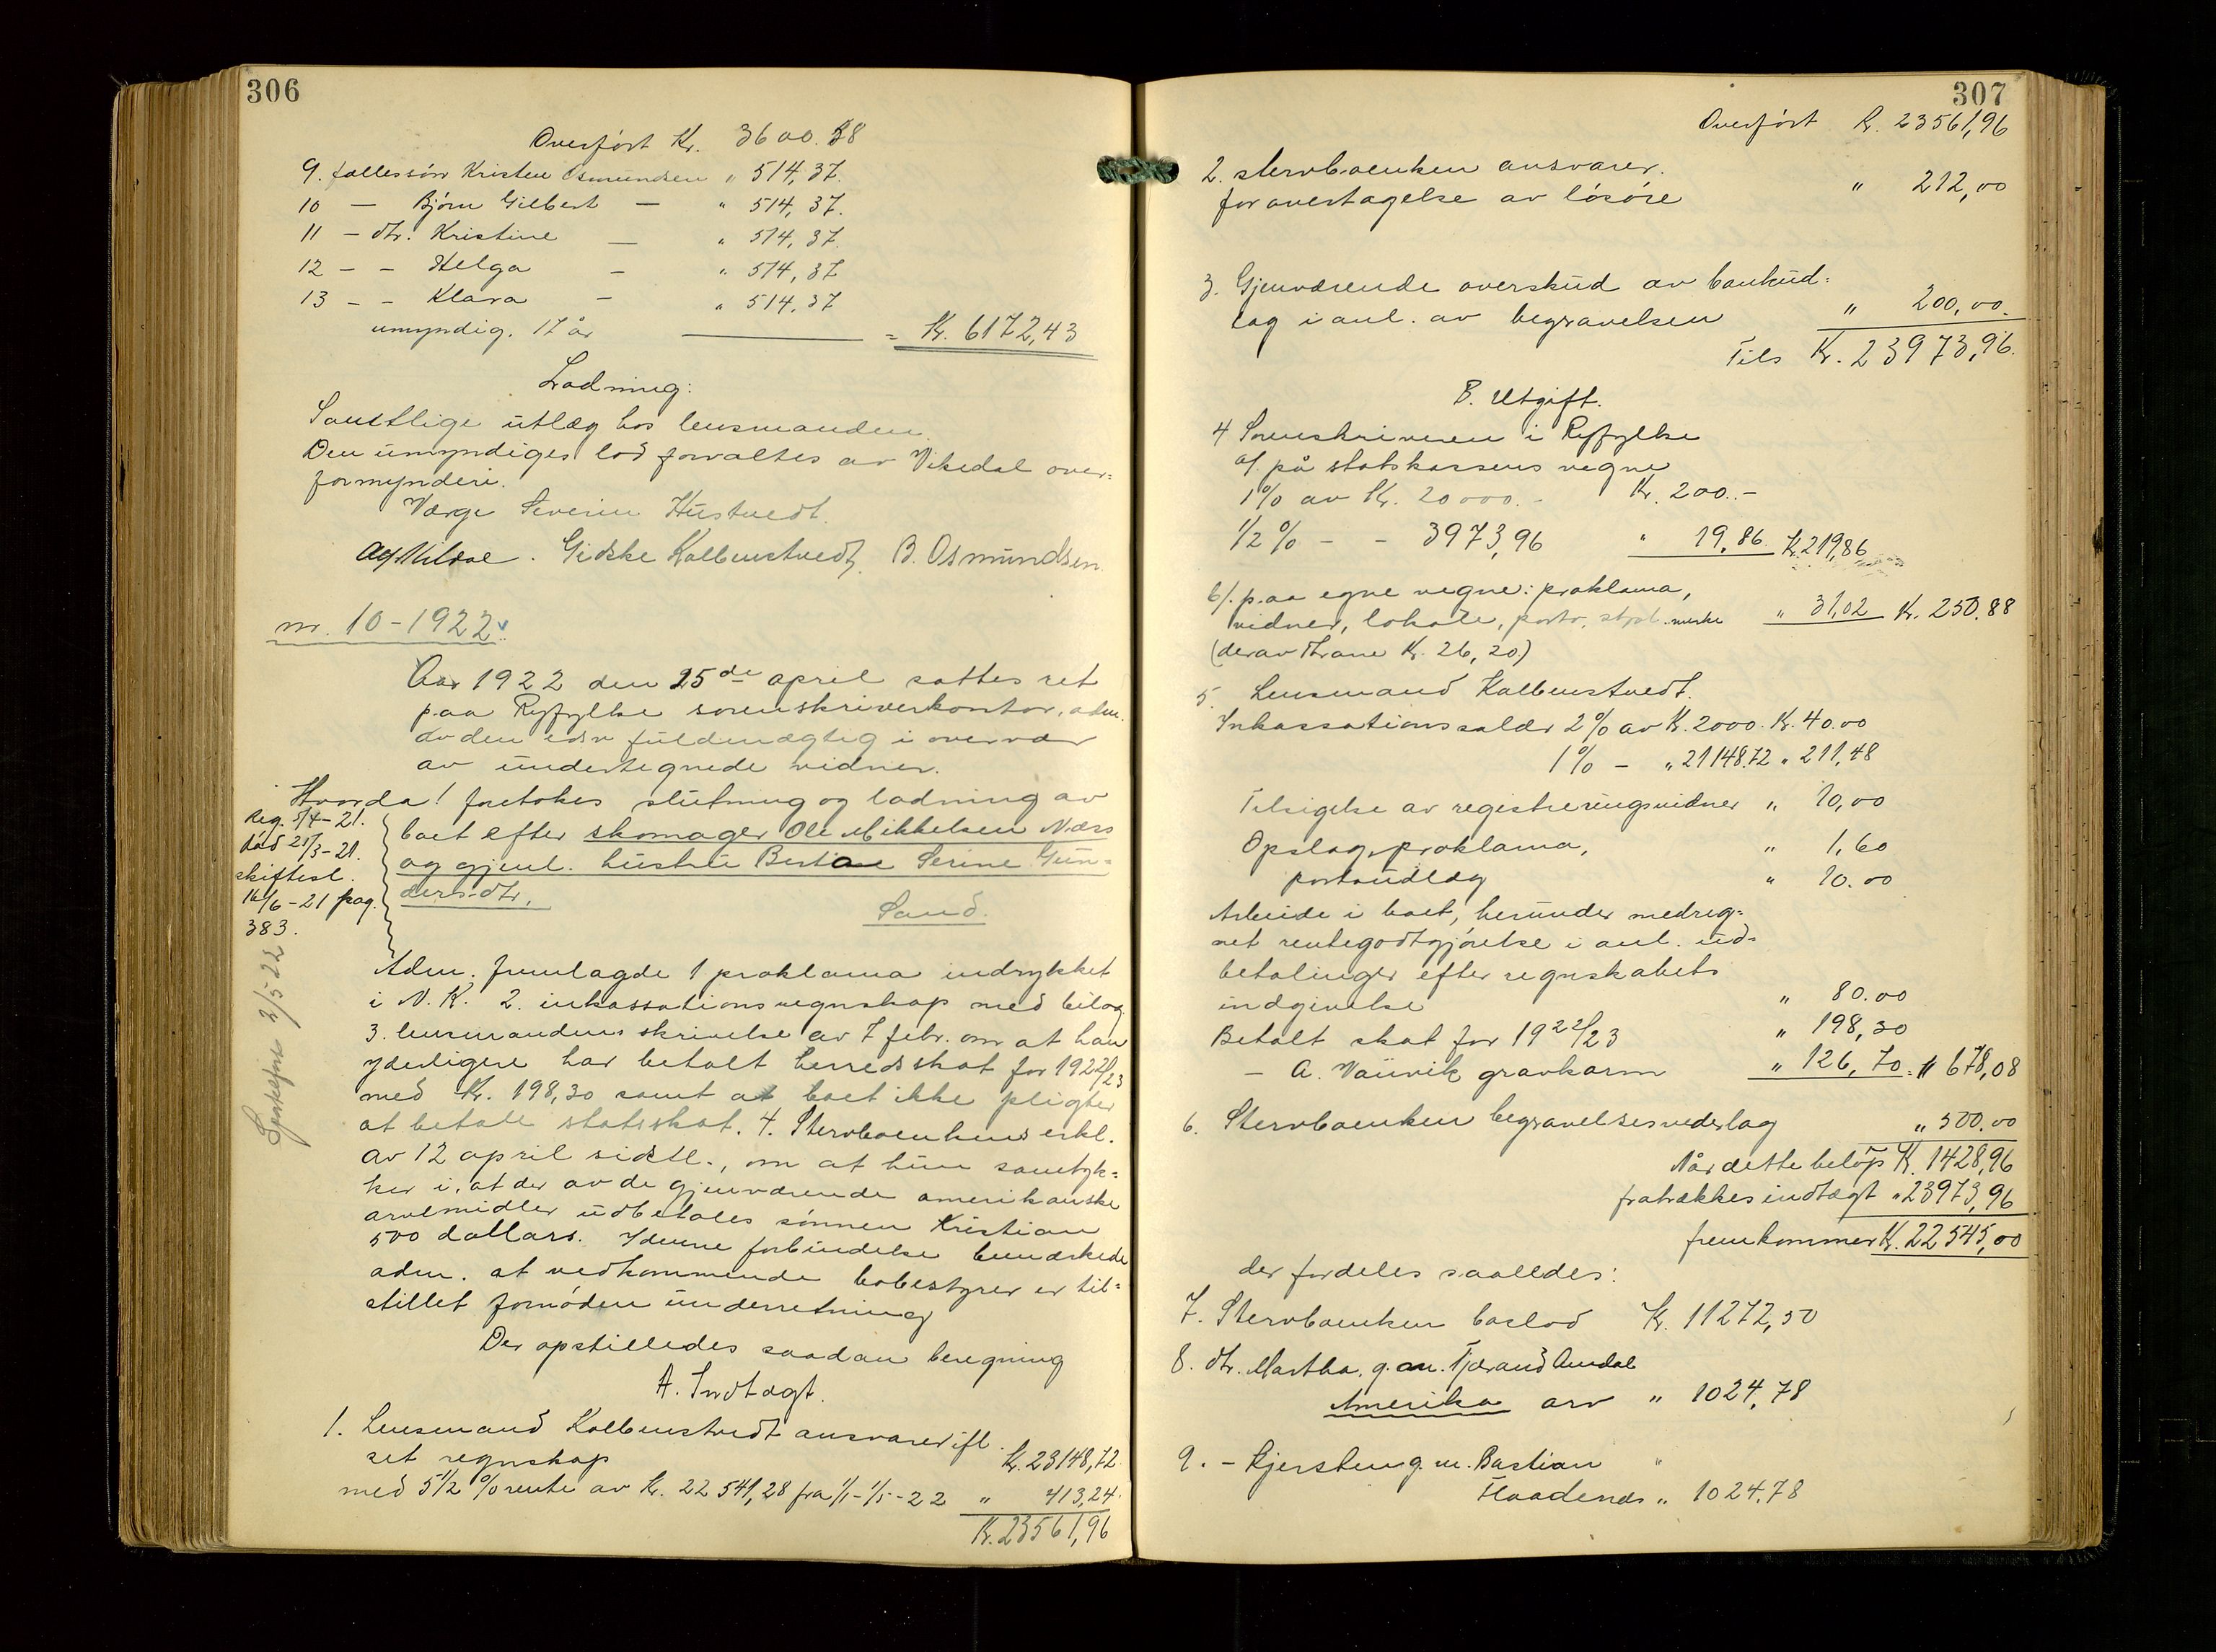 306
Overført Kr. 3600.58
9. fællessøn Kristen Osmundsen " 514,37.
10 — Bjørn Gilbert — " 514,37.
11 — dtr. Kristine — " 514,37.
12 — — Helga — " 514,37
13 — — Klara — " 514,37
umyndig. 17 år = Kr. 6172,43
Lodning:
Samtlige utlæg hos lensmanden.
Den umyndiges lod forvaltes av Vikedal over-
formynderi.
Værge Severin Hustvedt.
Gidske Kolbenstvedt, B. Osmundsen.
nr. 10-1922.
Aar 1922 den 25de april sattes ret
paa Ryfylke sorenskriverkontor, adm.
av den edsv fuldmægtig i overvær
av undertegnede vidner.
Hvorda! foretokes slutning og lodning av
boet efter skomager Ole Mikkelsen Næss
og gjenl. hustru Bertine Serine Gun-
ders.dtr.
Sand.
Reg. 5/4-21.
død 21/3-21.
skiftesl.
16/6-21 pag.
383.
Sportelfire 2/5 22
Adm. fremlagde 1 proklama indrykket
i N. K. 2. inkassationsregnskap med bilag
3. lensmandens skrivelse av 7 febr. om at han
yderligere har betalt herredsskat for 1922/23
med Kr. 198,30 samt at boet ikke pligter
at betale statsskat. 4. Stervboenkens erkl.
av 12 april sidstl., om at hun samtyk-
ker i, at der av de gjenværende amerikanske
arvemidler udbetales sønnen Kristian
500 dollars. I denne forbindelse bemærkede
adm. at vedkommende bobestyrer er til-
stillet fornøden underretning
Der opstilledes saadan beregning
A. Indtægt.
1. Lensmand Kolbenstvedt ansvarer ifl.
set regnskap Kr. 23148,72.
med 5 1/2 % rente av Kr. 22541,28 fra 1/1-1/5-22 " 413,24.
Kr. 23561,96
307
Overført Kr. 23561,96
2. stervboenken ansvarer
for overtagelse av løsøre " 212,00
3. Gjenværende overskud av boutud-
lag i anl. av begravelsen " 200,00.
Tils Kr. 23973,96.
B. Utgift.
4 Sorenskriveren i Ryfylke
a/. på statskassens vegne
1% av Kr. 20000.- Kr. 200.-
1/2 % - - 3973,96 " 19,86. Kr. 219,86
b/. paa egne vegne: proklama,
vidner, lokale, porto, stpl. merke " 31,02 Kr. 250.88
(derav Thrane Kr. 26,20)
5. Lensmand Kolbenstvedt.
Inkassationssalær 2% av Kr. 2000. Kr. 40.00
1% - " 21148.72 " 211,48
Tilsigelse av registreringsvidner " 10,00
Opslag, proklama, " 1,60
portoudlæg " 10.00
Arbeide i boet, herunder medreg-
net rentegodtgjørelse i anl. ud-
betalinger efter regnskabets
indgivelse " 80.00
Betalt skat for 1922/23 " 198,30
— A. Vaûvik gravkarm " 126,70 = " 678,08
6. Stervboenken begravelsesvederlag " 500.00
Når dette beløp Kr. 1428,96
fratrækkes indtægt " 23973,96
fremkommer Kr. 22545,00
der fordeles saaledes:
7. Stervboenken boslod Kr. 11272,50
8. dtr. Martha, g. m. Tjerand Amdal
Amerika arv " 1024,78
9. — Kjersten g. m. Bastian "
Flaadenæs " 1024.78